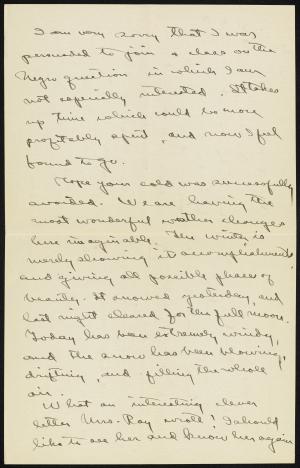 I am very sorry that I was
persuaded to join a class on the
Negro question in which I am
not especially interested. It takes
up time which could be more
profitably spent, and now I feel
bound to go.
Hope your cold was successfully
avoided. We are having the
most wonderful weather changes
here imaginable. The winter is
merely showing its accomplishments,
and giving all possible phases of
beauty. It snowed yesterday, and
last night cleared for the full moon.
Today has been extremely windy,
and the snow has been blowing,
drifting, and filling the whole
air.
What an interesting clever
letter Mrs. Ray wrote! I should
like to see her and know her again